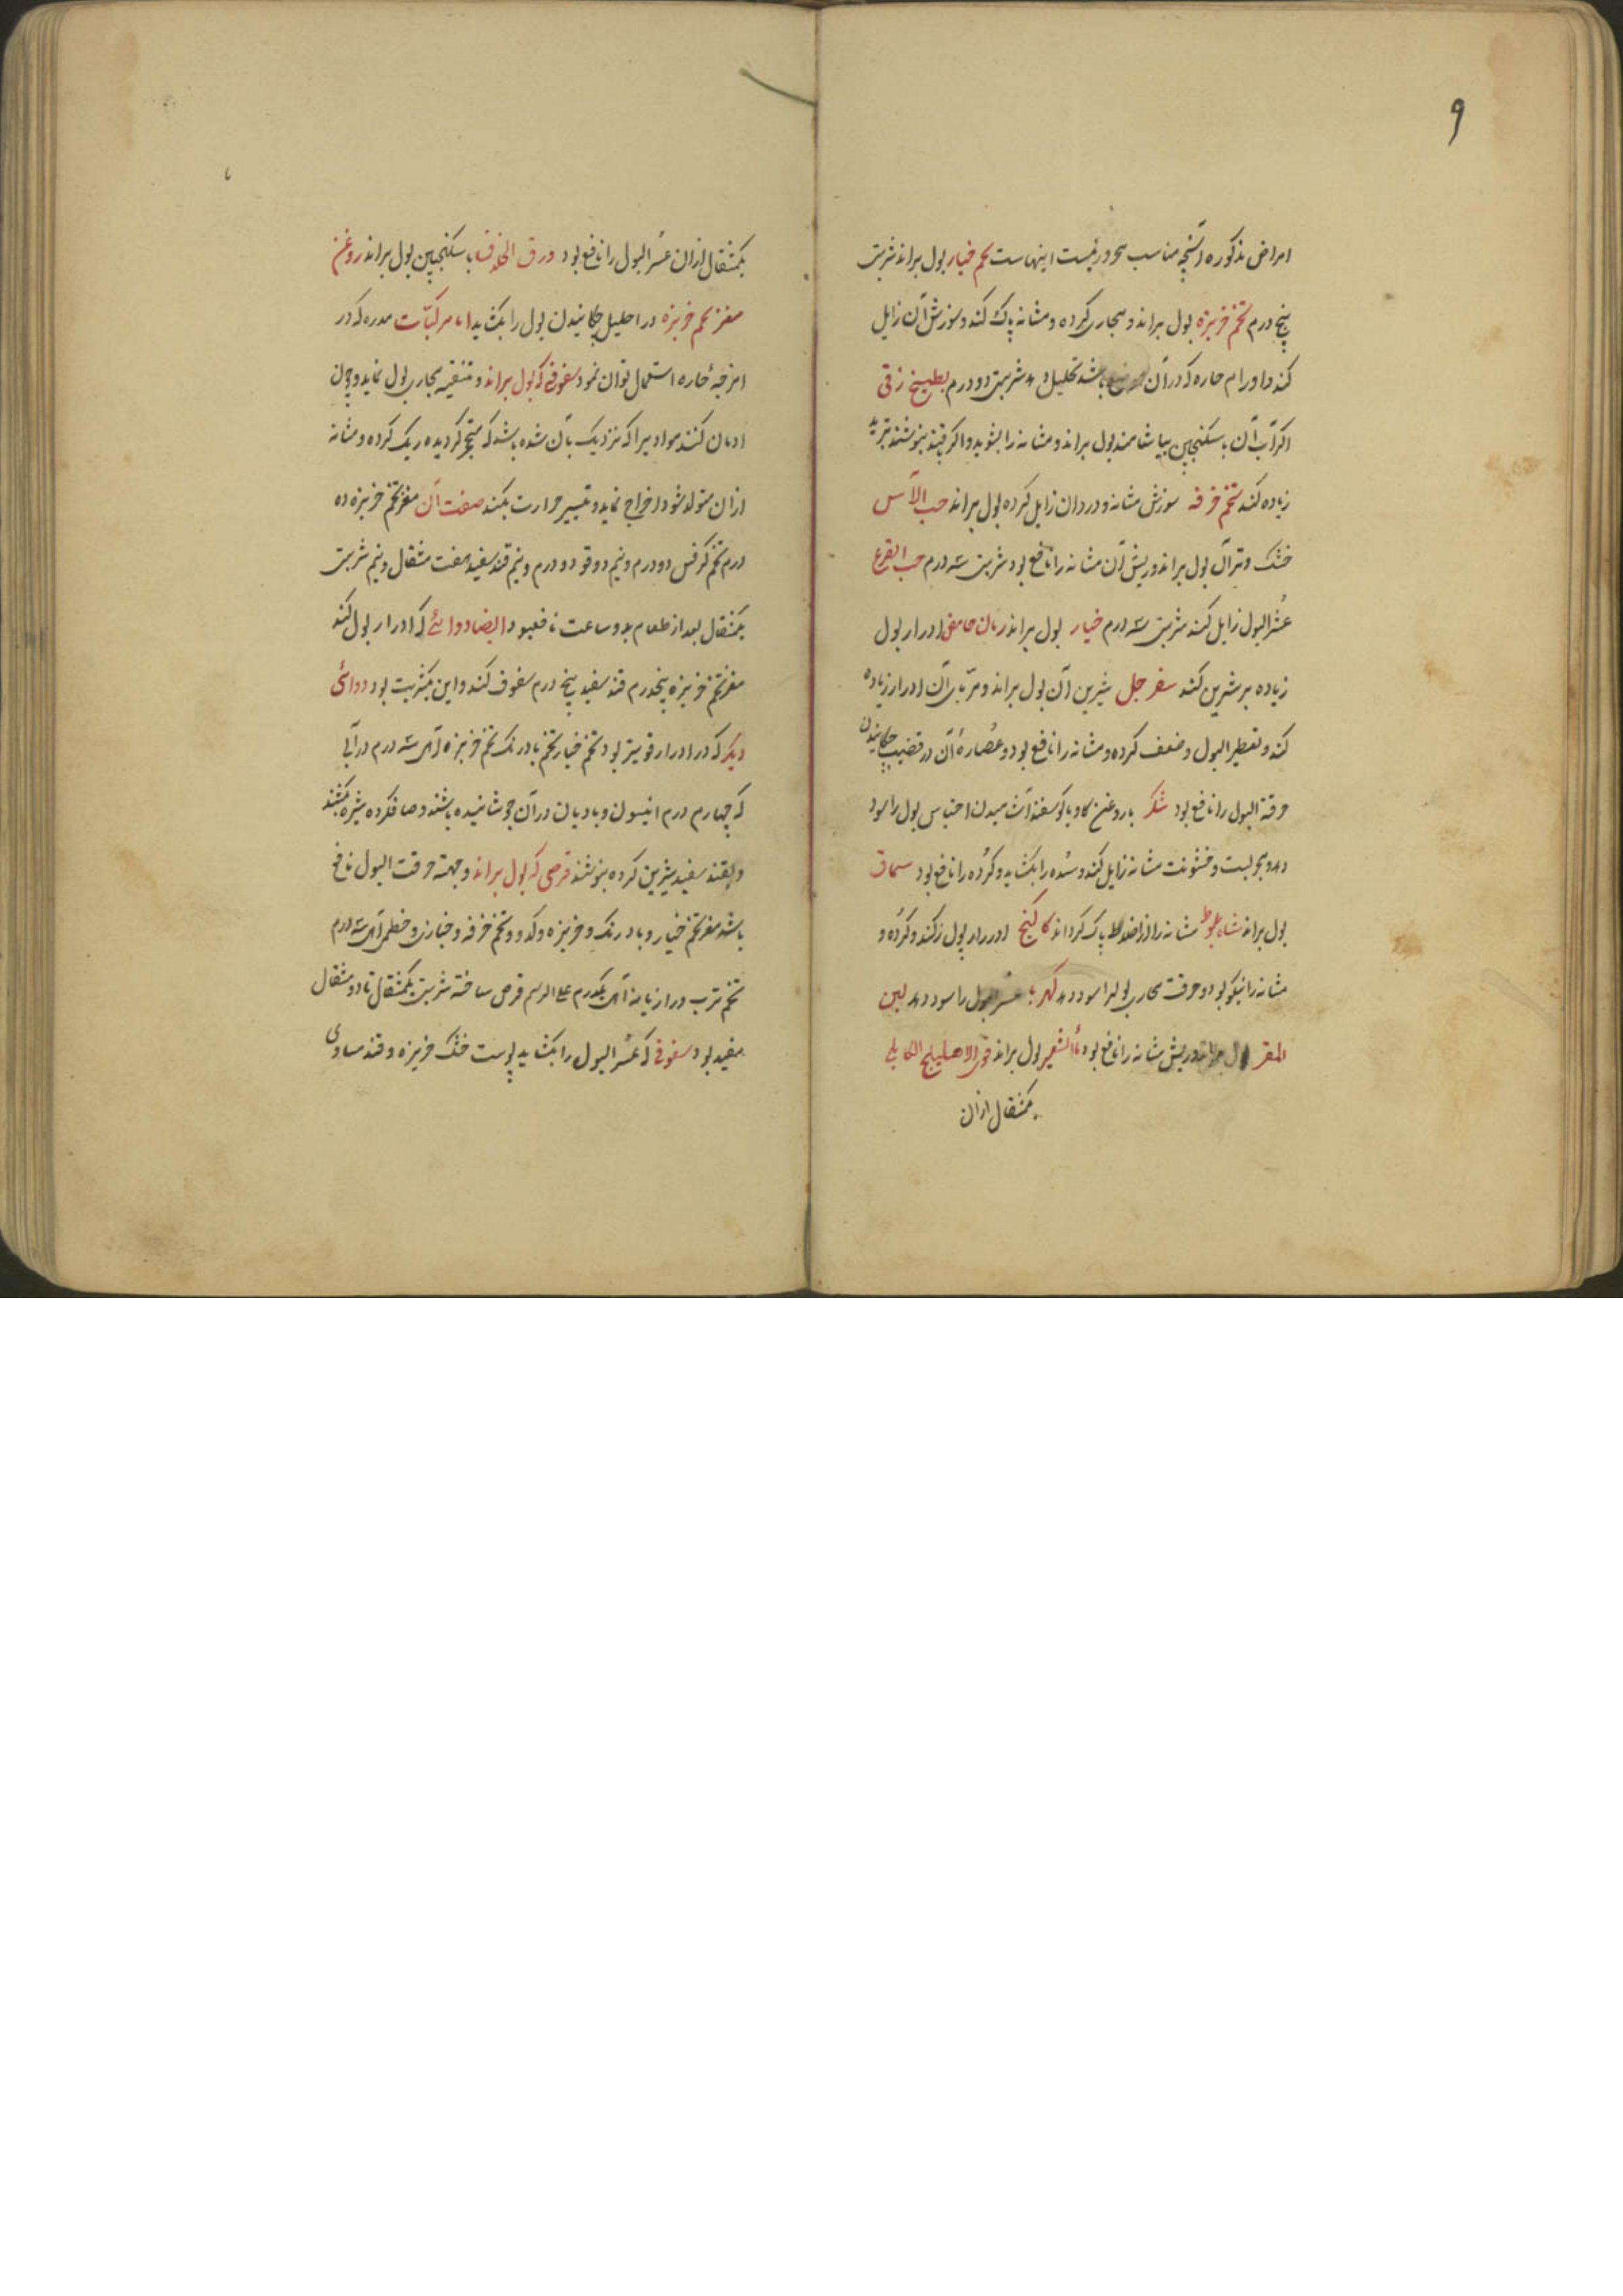 ۹
امراض مذکوره و آنچه مناسب محرورینست اینهاست تخم خیار بول براند شربت
پنج درم تخم خربزه بول براند و مجاری کرده و مثانه پاک کند و سوزش آن زایل
کند و اورام حاره که در آن باشد تحلیل دهد شربتی دو درم بطیخ زقی
اکر آب آن با سکنجبین بیاشامند بول براند و مثانه را بشوید و اکر بقند بنوشند تبرید
زیاده کند تخم خرفه سوزش مثانه و درد آن زایل کرده بول براند حب الآس
خشک و تر آن بول براند و ریش آن مثانه را نافع بود شربت سه درم حب القرع
عسُر البول زایل کند شربت سه درم خیار بول براند رمان حامض ادرار بول
زیاده بر شیرین کند سفرجل شیرین آن بول براند و مربّای آن ادرار زیاده
کند و تقطیر البول و ضعف کرده و مثانه را نافع بود و عُصارهٔ آن در قضیب چکانیدن
حرقة البول را نافع بود شکر با روغن کاو یا کوسفند آشامیدن احتباس بول را سود
دهد و یبوست و خشونت مثانه زایل کند و سُده را بکشاید و کُرده را نافع بود سماق
بول براند شاه بلوط مثانه را از اخلاط پاک کرداند کاکنج ادرار بول کند و کُرده و
مثانه را نیکو بود و حرقت مجاری بول را سود دهد کهربا عسر البول را سود دهد لبن
بول براند و ریش مثانه را نافع بود ماء الشعیر بول براند الاهلیلج الکابلی
یکمثقال از آن
یکمثقال از آن عسُر البول را نافع بود ورق الخلاف با سکنجبین بول براند روغن
مغز تخم خربزه در احلیل چکانیدن بول را بکشاید اما مرکبّات مدره که در
امزجهٔ حاره استعمال توان نمود سفوفی که بول براند و تنقیه مجاری بول نماید و چون
ادمان کنند موادیرا که نزدیک بآن شده باشد که متحجر کردیده ریک کرده و مثانه
از آن متولد شود اخراج نماید و تسییر حرارت بکند صفت آن مغز تخم خربزه ده
درم تخم کرفس دو درم و نیم دوقو دو درم و نیم قند سفید هفت مثقال و نیم شربت
یکمثقال بعد از طعام بدو ساعت نافعبود ایضا دوائی که ادرار بول کند
مغز تخم خربزه پنجدرم قند سفید پنج درم سفوف کنند و این یکشربت بود دوائی
دیکر که در ادرار قویتر بود تخم خیار تخم بادرنک تخم خربزه از هر یک سه درم در آبی
که چهار درم انیسون و بادیان در آن جوشانیده باشند و صاف کرده شیره کشند
و بقند سفید شیرین کرده بنوشند قرصی که بول براند و جهة حرقت البول نافع
باشد مغز تخم خیار و بادرنک و خربزه و کدو و تخم خرفه و خبازی و خطمی از هر یک سه درم
تخم ترب و رازیانه از هر یک یکدرم علی الرسم قرص ساخته شربت یکمثقال تا دو مثقال
مفید بود سفوفی که عسُر البول را بکشاید پوست خشک خربزه و قند مساوی